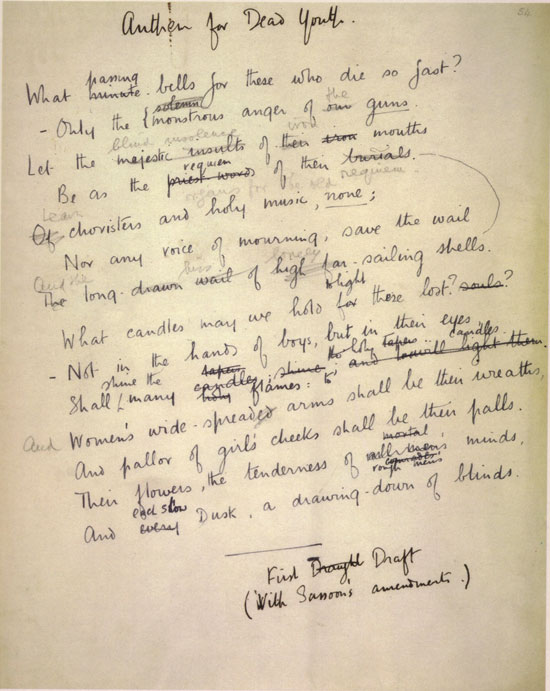 54
Anthem for Dead Youth.
passing
What minute bells for these who die so fast?
solemn
the
- Only the monstrous anger of our guns.
blind insolence
iron
Let the majestic insults of their iron mouths
requiem
Be as the priest words of their burials.
organs for the old requiem
Learn
Of choristers and holy music, none;
Nor any voice of mourning, save the wail
And the
hiss
lonely
The long-drawn wail of high far-sailing shells.
to light
What candles may we hold for these lost? souls?
- Not in the hands of boys, but in their eyes
shine the
taper
holy tapers
candles.
Shall many candles shine and will light them.
holy flames: to
And Women's wide-spreaded arms shall be their wreaths,
And pallor of girls' cheeks shall be their palls.
mortal
Their flowers, the tenderness of minds,
comrades'
rough men's
each slow
And every Dusk, a drawing-down of blinds.
First Draught Draft
(With Sassoon's amendments.)